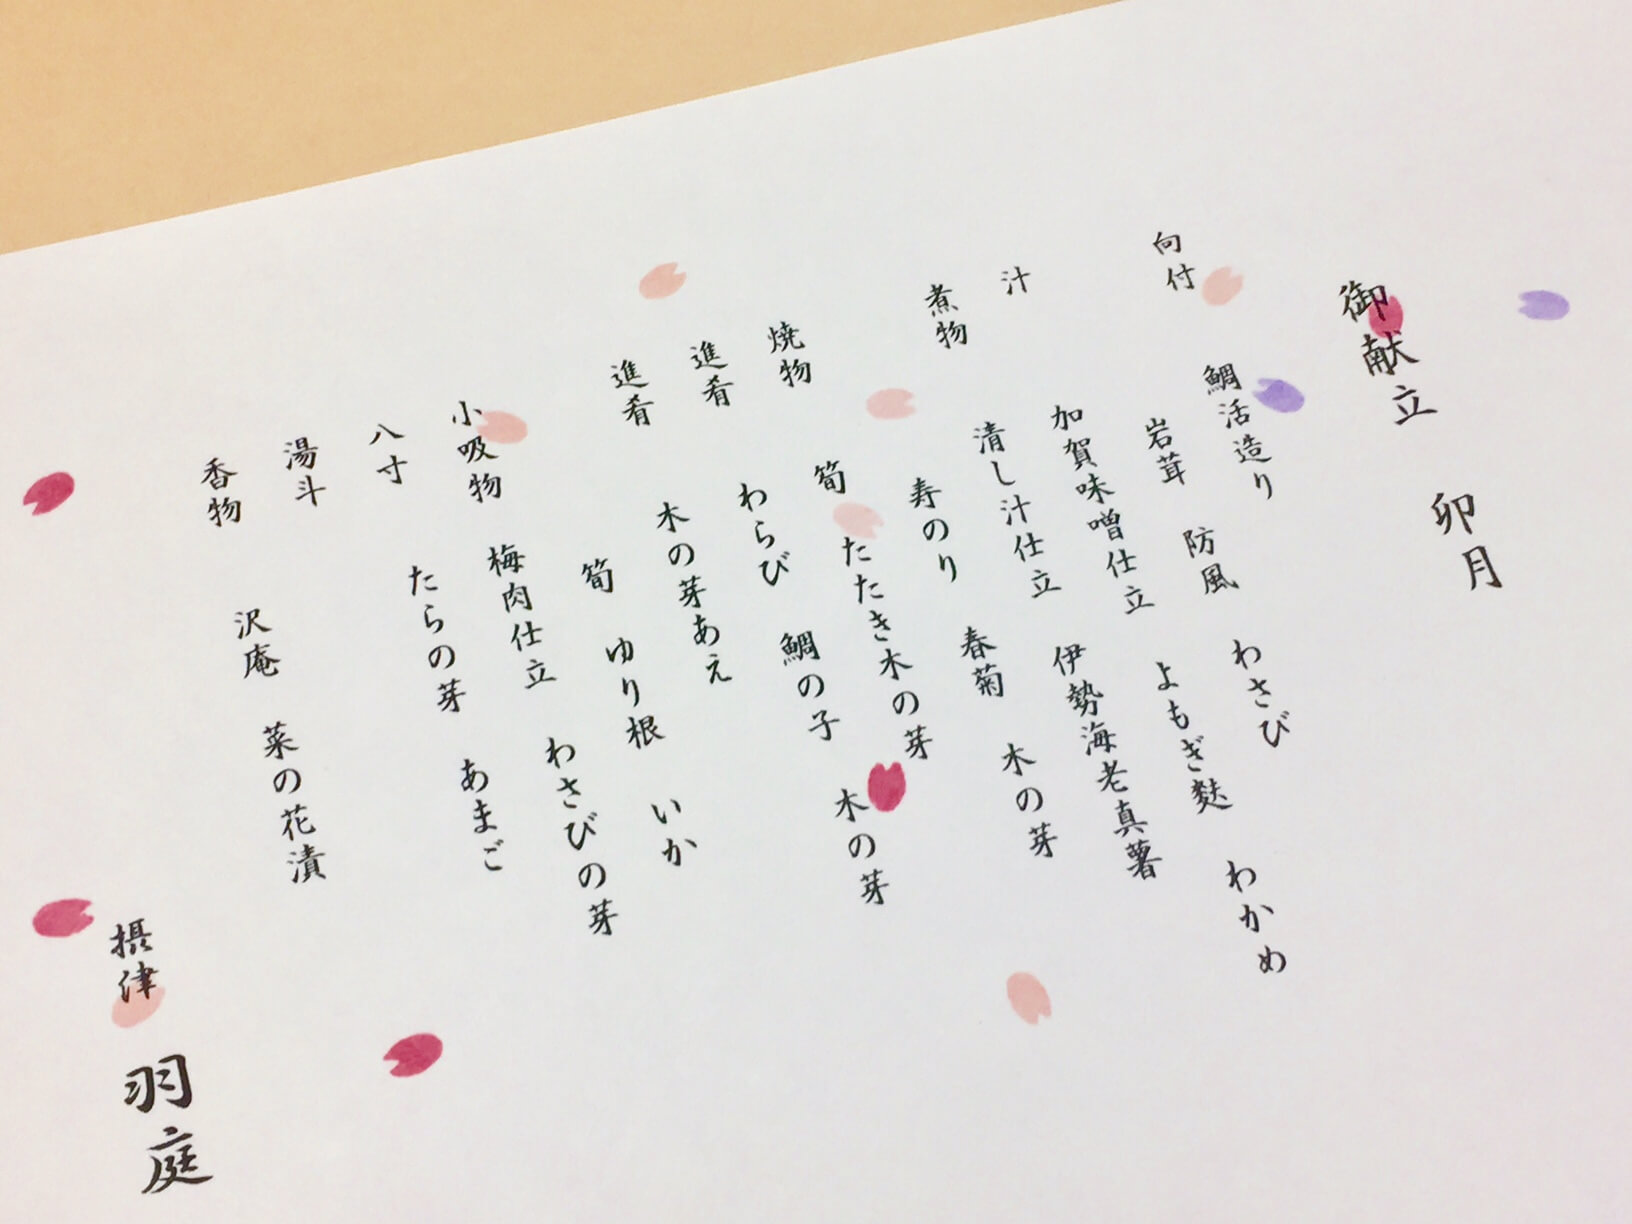 御献立 卯月
向付 鯛活造り
岩茸 防風 わさび
汁 加賀味噌仕立 よもぎ麩 わかめ
煮物 清し汁仕立 伊勢海老真薯
寿のり 春菊 木の芽
焼物 筍 たたき木の芽
進肴 わらび 鯛の子 木の芽
進肴 木の芽あえ
筍 ゆり根 いか
小吸物 梅肉仕立 わさびの芽
八寸 たらの芽 あまご
湯斗
香物 沢庵 菜の花漬
摂津 羽庭